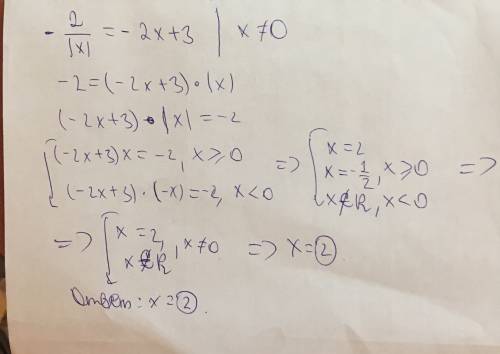 -2/|x| = -2x+3 | x≠0
-2=(-2x+3)·(x)
(-2x+3)·|x|=-2
[(-2x+3)x=-2, x≥0
(-2x+3)·(-x)=-2, x<0
=> [x=2
x=-1/2, x≥0
x∉R, x<0 =>
=> [x=2,
x∉R, x≠0 => x=2.
Ответ: x=2.